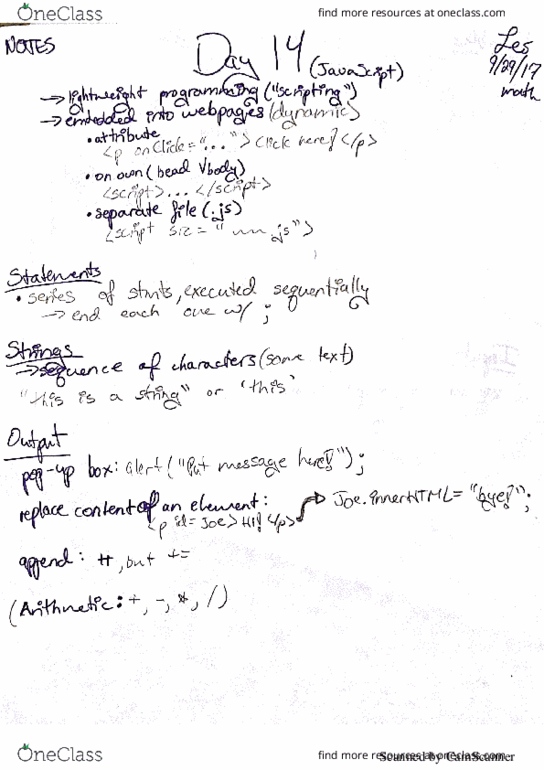 OneClass
find more resources at oneclass.com
NOTES
Day 14 (JavaScript)
Les
9/29/17
math
→ lightweight programming ("scripting")
→ embedded into webpages (dynamic)
• attribute
<p onClick = "..."> Click here! </p>
• on own (head /body)
<script> ... </script>
• separate file (.js)
<script src = " .js">
Statements
• series of stmts, executed sequentially
→ end each one w/ ;
Strings
→ sequence of characters (some text)
"this is a string" or 'this'
Output
pop-up box: alert ("Put message here!");
replace content of an element: → Joe.innerHTML = "bye!";
<p id = Joe> Hi! </p>
append: , but +=
(Arithmetic: +, -, *, /)
OneClass
find more resources at oneclass.com
Scanned by CamScanner